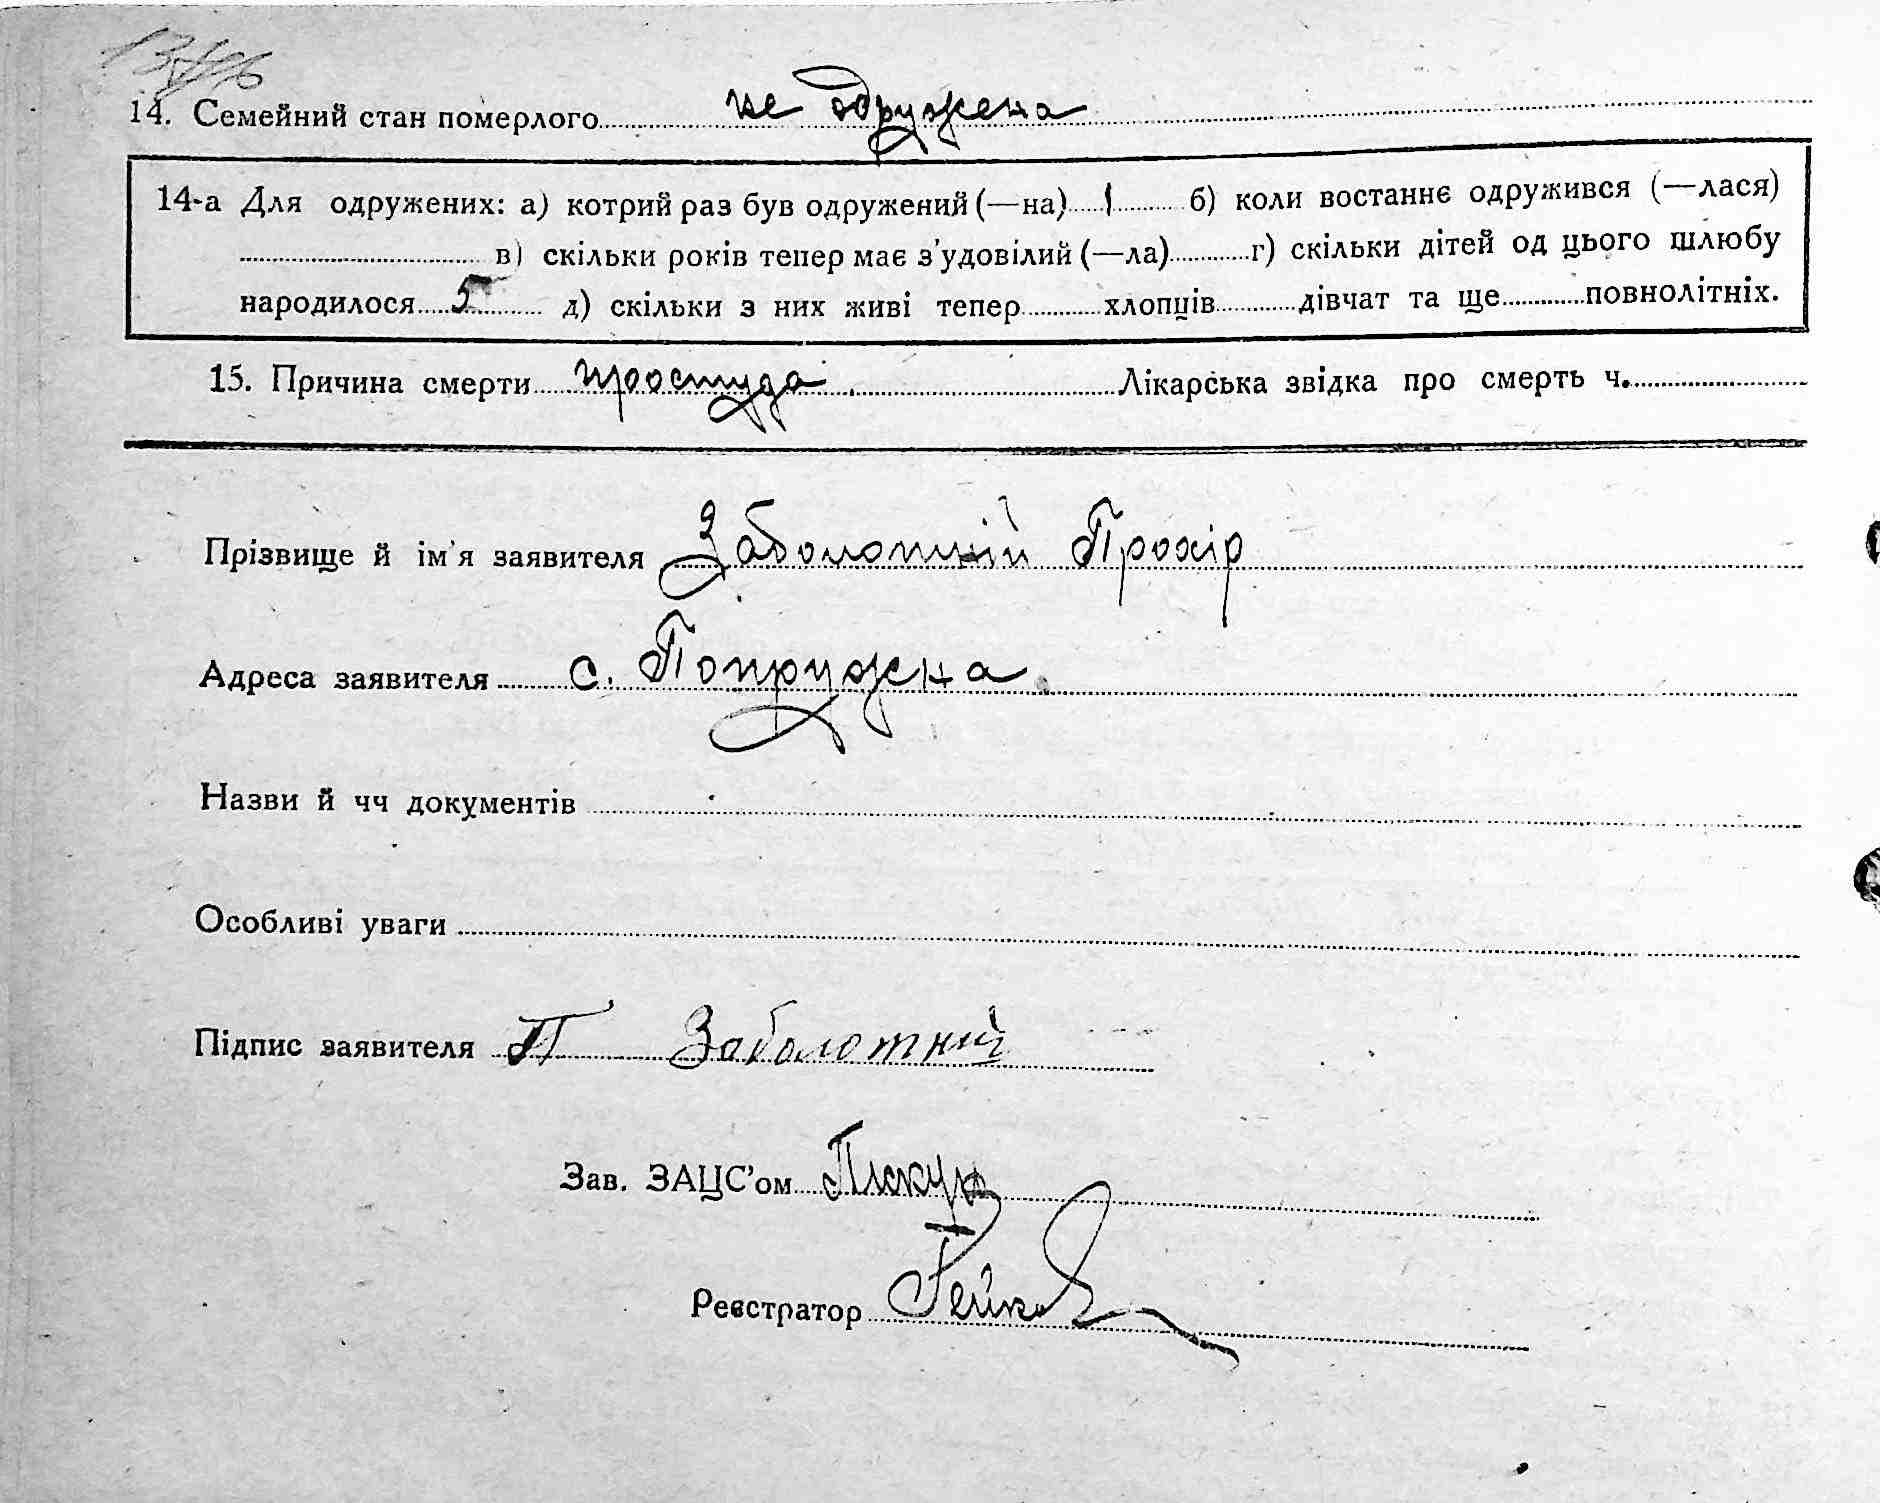 14. Семейний стан померлого не одружена
14-а Для одружених: а) котрий раз був одружений (—на) 1 б) коли востаннє одружився (—лася)
в) скільки років тепер має з'удовілий (—ла) г) скільки дітей од цього шлюбу
народилося 5 д) скільки з них живі тепер хлопців дівчат та ще повнолітніх.
15. Причина смерти простуда Лікарська звідка про смерть ч.
Прізвище й ім'я заявителя Заболотній Прохір
Адреса заявителя с. Попружна
Назви й чч документів
Особливі уваги
Підпис заявителя П Заболотний
Зав. ЗАЦС'ом Піскун
Реєстратор